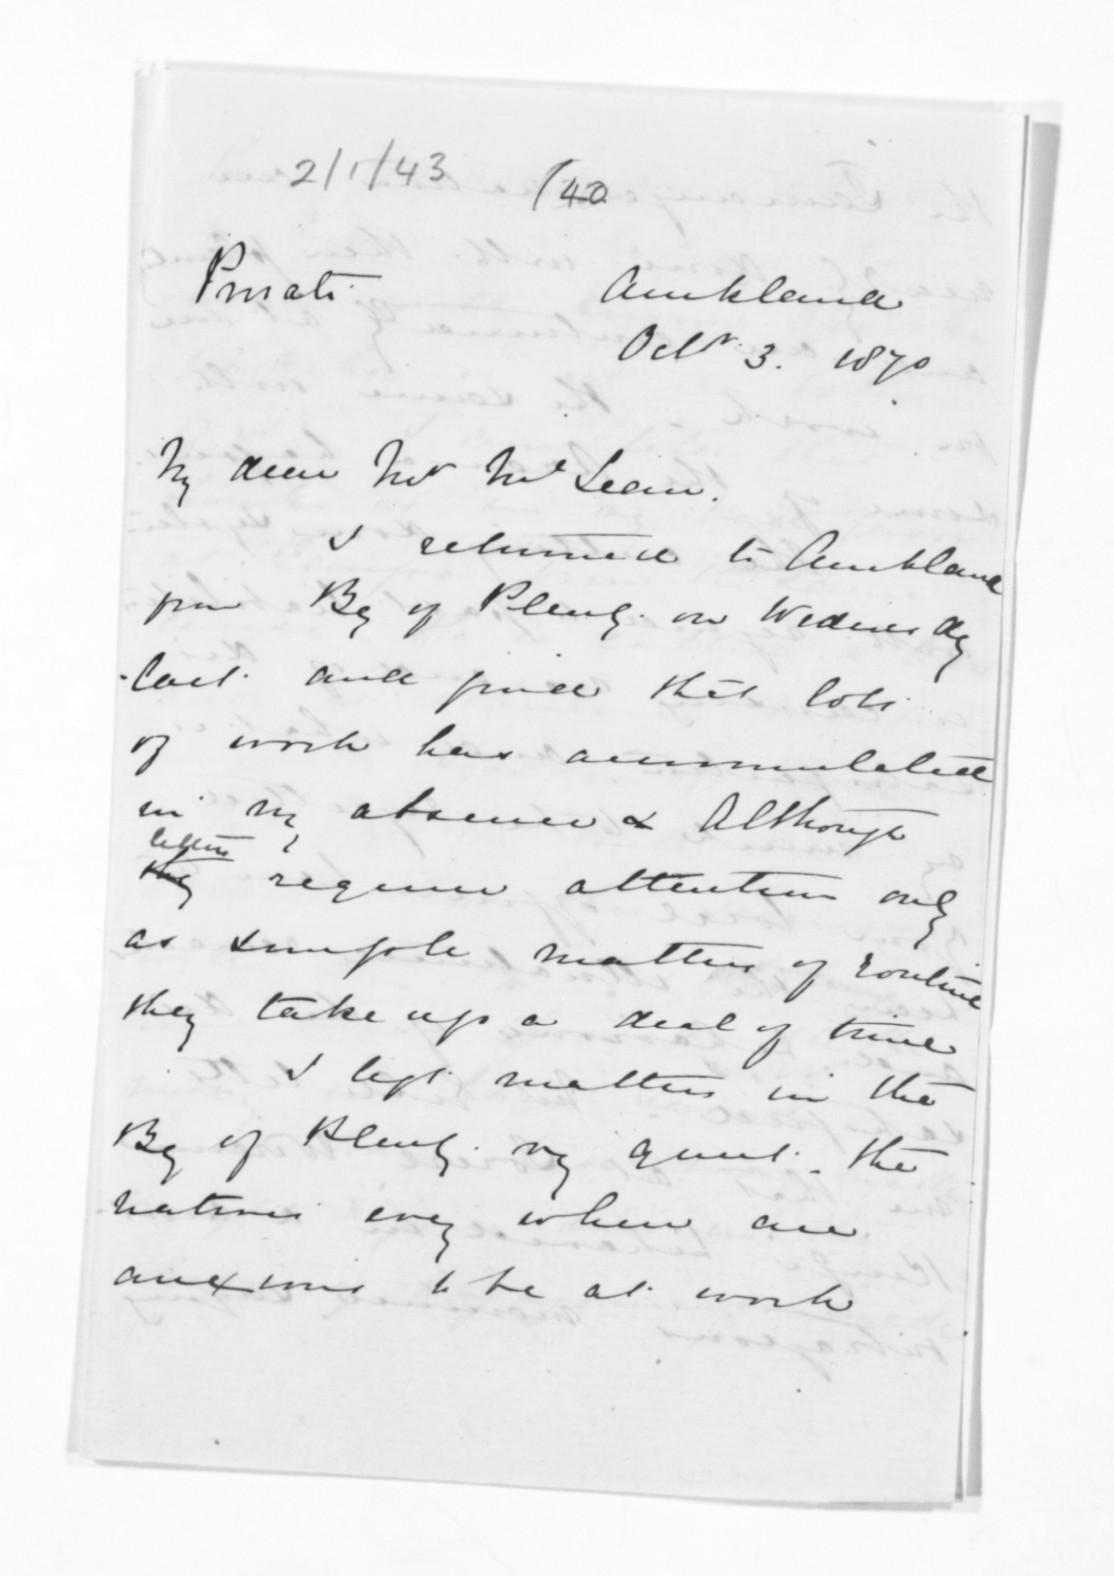 2/1/43 (40
Private Auckland
Octr 3. 1870
My dear Mr McLean.
I returned to Auckland
from Bay of Plenty on Wednesday
last and find that lots
of work has accumulated
in my absence & Although
letters
they require attention only
as simple matters of routine
they take up a deal of time
I left matters in the
Bay of Plenty very quiet. the
natives every where are
anxious to be at work